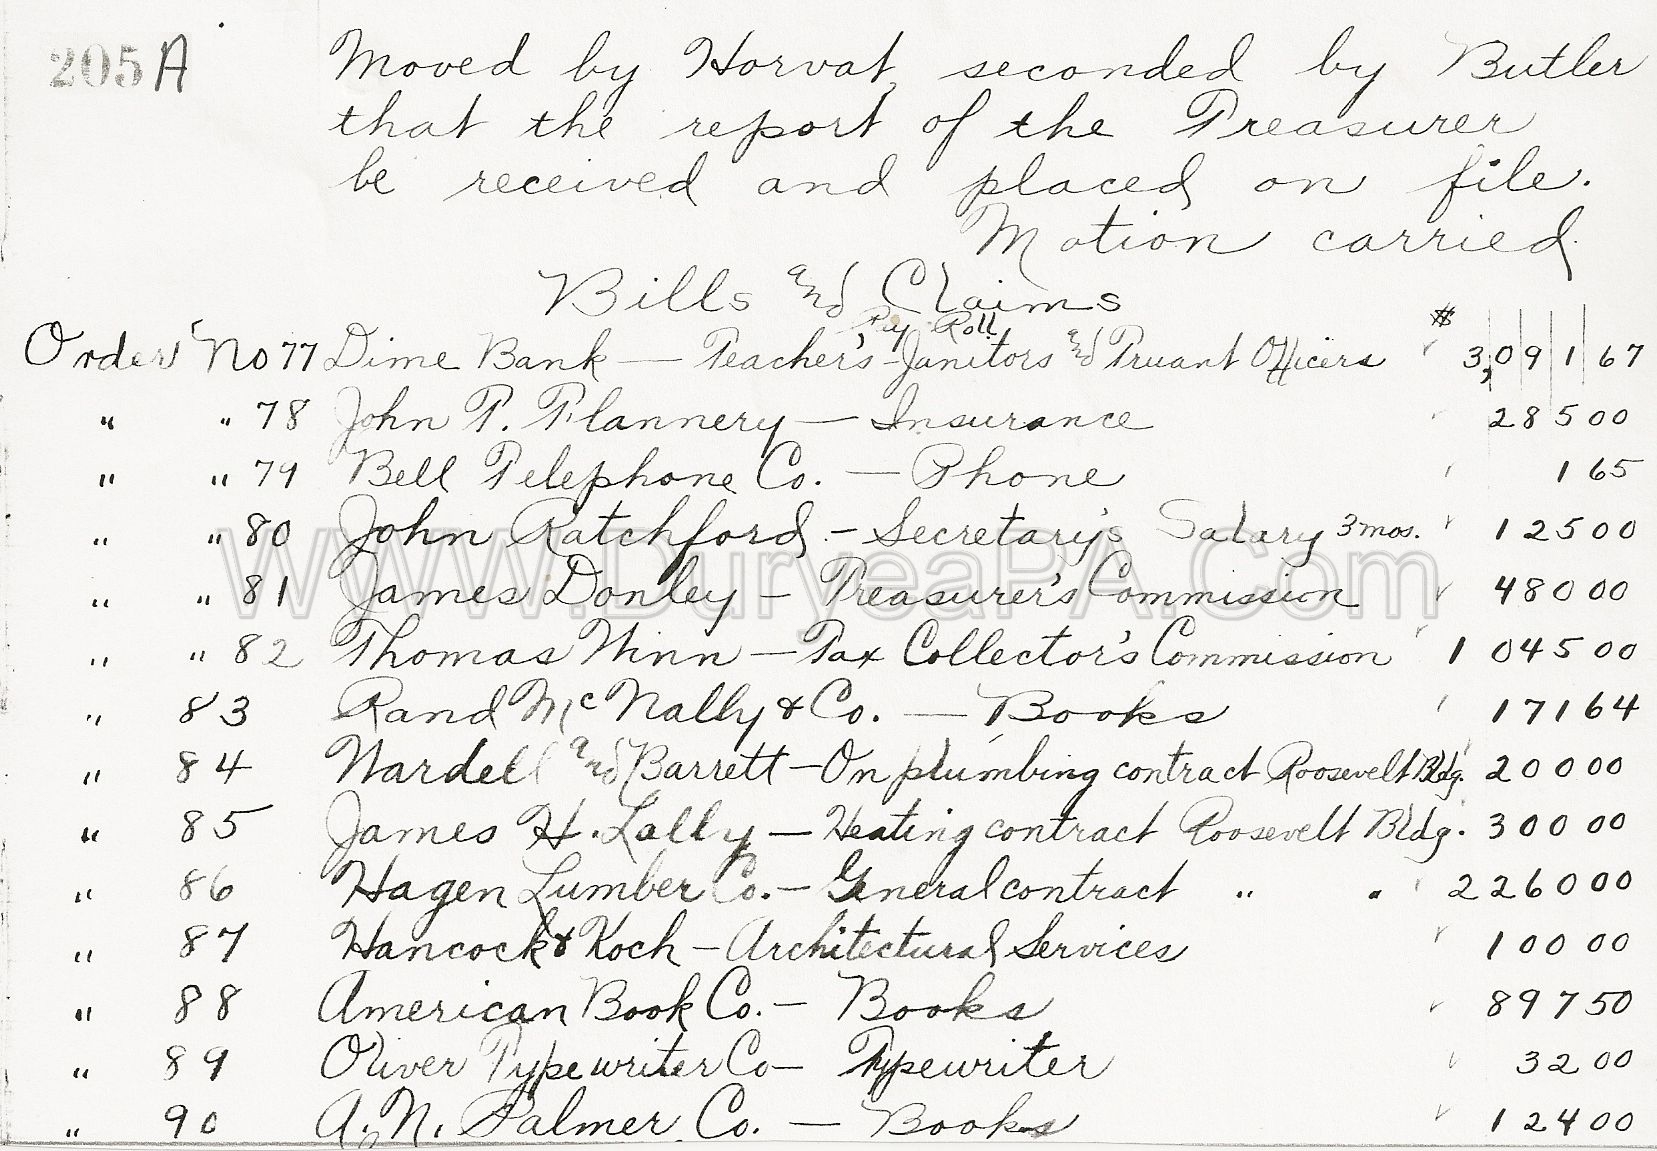 205 A
Moved by Horvat, seconded by Butler
that the report of the Treasurer
be received and placed on file.
Motion carried.
Bills and Claims
Pay Roll
Orders No 77 Dime Bank — Teacher's - Janitors and Truant Officers $ 3,091 67
" " 78 John T. Flannery — Insurance 285 00
" " 79 Bell Telephone Co. — Phone 1 65
" " 80 John Ratchford - Secretary's Salary 3 mos. 125 00
" " 81 James Donley - Treasurer's Commission 480 00
" " 82 Thomas Winn — Tax Collector's Commission 1 045 00
" 83 Rand McNally & Co. — Books 171 64
" 84 Wardell and Barrett - On plumbing contract Roosevelt Bldg. 200 00
" 85 James H. Lally — Heating contract Roosevelt Bldg. 300 00
" 86 Hagen Lumber Co. - General contract " " 2260 00
" 87 Hancock & Koch - Architectural Services 100 00
" 88 American Book Co. - Books 897 50
" 89 Oliver Typewriter Co - Typewriter 32 00
" 90 A. N. Palmer Co. — Books 124 00
www.DuryeaPA.Com